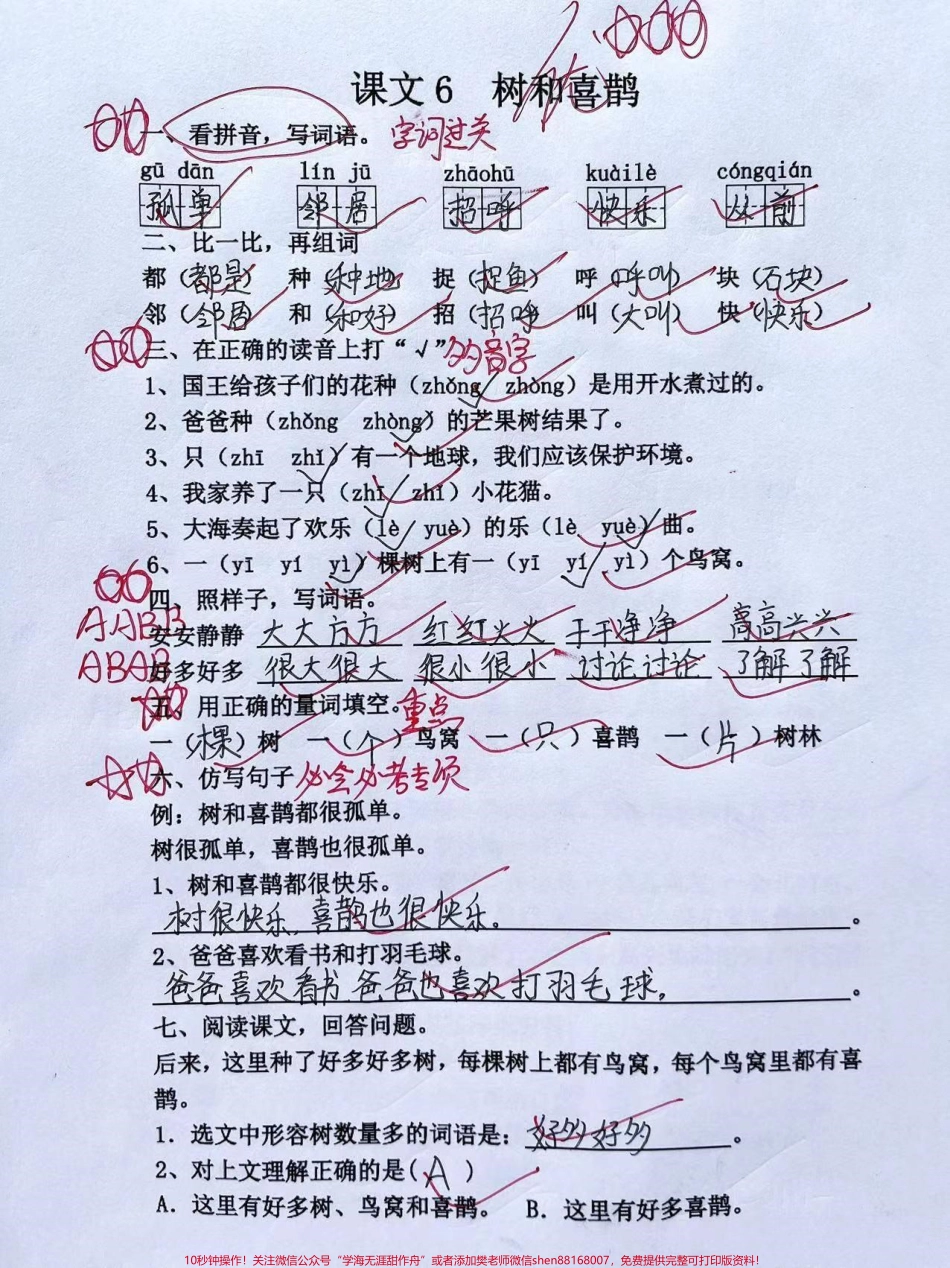 课文6 树和喜鹊
一、看拼音，写词语。 字词过关
gū dān lín jū zhāohū kuàilè cóngqián
孤单 邻居 招呼 快乐 从前
二、比一比，再组词
都（都是） 种（种地） 捉（捉鱼） 呼（呼叫） 块（石块）
邻（邻居） 和（和好） 招（招呼） 叫（大叫） 快（快乐）
三、在正确的读音上打“√” 多音字
1、国王给孩子们的花种（zhǒng√ zhòng）是用开水煮过的。
2、爸爸种（zhǒng zhòng√）的芒果树结果了。
3、只（zhī zhǐ√）有一个地球，我们应该保护环境。
4、我家养了一只（zhī√ zhǐ）小花猫。
5、大海奏起了欢乐（lè√ yuè）的乐（lè yuè√）曲。
6、一（yī yí yì√）棵树上有一（yī yí√ yì）个鸟窝。
四、照样子，写词语。
AABB
安安静静 大大方方 红红火火 干干净净 高高兴兴
ABAB
好多好多 很大很大 很小很小 讨论讨论 了解了解
五 用正确的量词填空。 重点
一（棵）树 一（个）鸟窝 一（只）喜鹊 一（片）树林
六、仿写句子 必会必考专项
例：树和喜鹊都很孤单。
树很孤单，喜鹊也很孤单。
1、树和喜鹊都很快乐。
树很快乐，喜鹊也很快乐。。
2、爸爸喜欢看书和打羽毛球。
爸爸喜欢看书，爸爸也喜欢打羽毛球。。
七、阅读课文，回答问题。
后来，这里种了好多好多树，每棵树上都有鸟窝，每个鸟窝里都有喜
鹊。
1．选文中形容树数量多的词语是：好多好多。
2、对上文理解正确的是(A)
A．这里有好多树、鸟窝和喜鹊。 B．这里有好多喜鹊。
10秒钟操作！关注微信公众号“学海无涯甜作舟”或者添加樊老师微信shen88168007，免费提供完整可打印版资料！